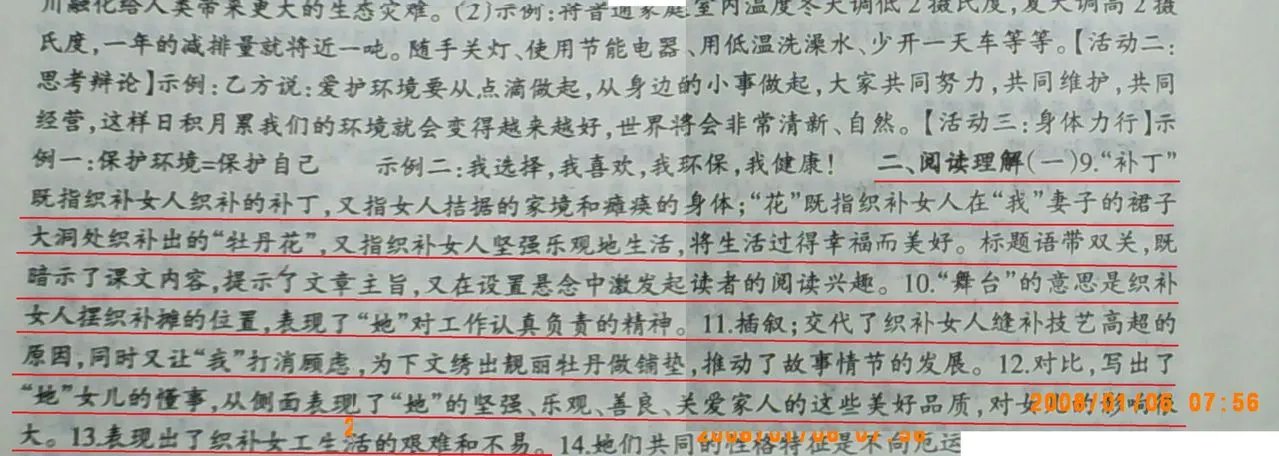 川融化给人类带来更大的生态灾难。(2)示例:将普通家庭室内温度冬天调低2摄氏度,夏天调高2摄
氏度,一年的减排量就将近一吨。随手关灯、使用节能电器、用低温洗澡水、少开一天车等等。【活动二:
思考辩论】示例:乙方说:爱护环境要从点滴做起,从身边的小事做起,大家共同努力,共同维护,共同
经营,这样日积月累我们的环境就会变得越来越好,世界将会非常清新、自然。【活动三:身体力行】示
例一:保护环境=保护自己 示例二:我选择,我喜欢,我环保,我健康! 二、阅读理解(一)9.“补丁”
既指织补女人织补的补丁,又指女人拮据的家境和瘫痪的身体;“花”既指织补女人在“我”妻子的裙子
大洞处织补出的“牡丹花”,又指织补女人坚强乐观地生活,将生活过得幸福而美好。标题语带双关,既
暗示了课文内容,提示了文章主旨,又在设置悬念中激发起读者的阅读兴趣。10.“舞台”的意思是织补
女人摆织补摊的位置,表现了“她”对工作认真负责的精神。11.插叙;交代了织补女人缝补技艺高超的
原因,同时又让“我”打消顾虑,为下文绣出靓丽牡丹做铺垫,推动了故事情节的发展。12.对比,写出了
“她”女儿的懂事,从侧面表现了“她”的坚强、乐观、善良、关爱家人的这些美好品质,对女
2008/01/06 07:56
大。13.表现出了织补女工生活的艰难和不易。14.她们共同的性格特征是不向厄运
2
2008/01/06 07:56